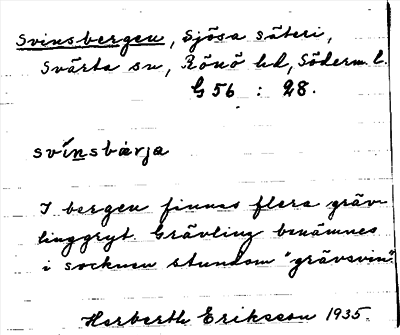 Svinsbergen, Sjösa säteri,
Svärta sn, Rönö hd, Söderm. l.
G 56 : 28.
svínsbærja
I bergen finnes flera gräv-
linggryt. Grävling benämnes
i socknen stundom "grävsvin".
Herberth Eriksson 1935.